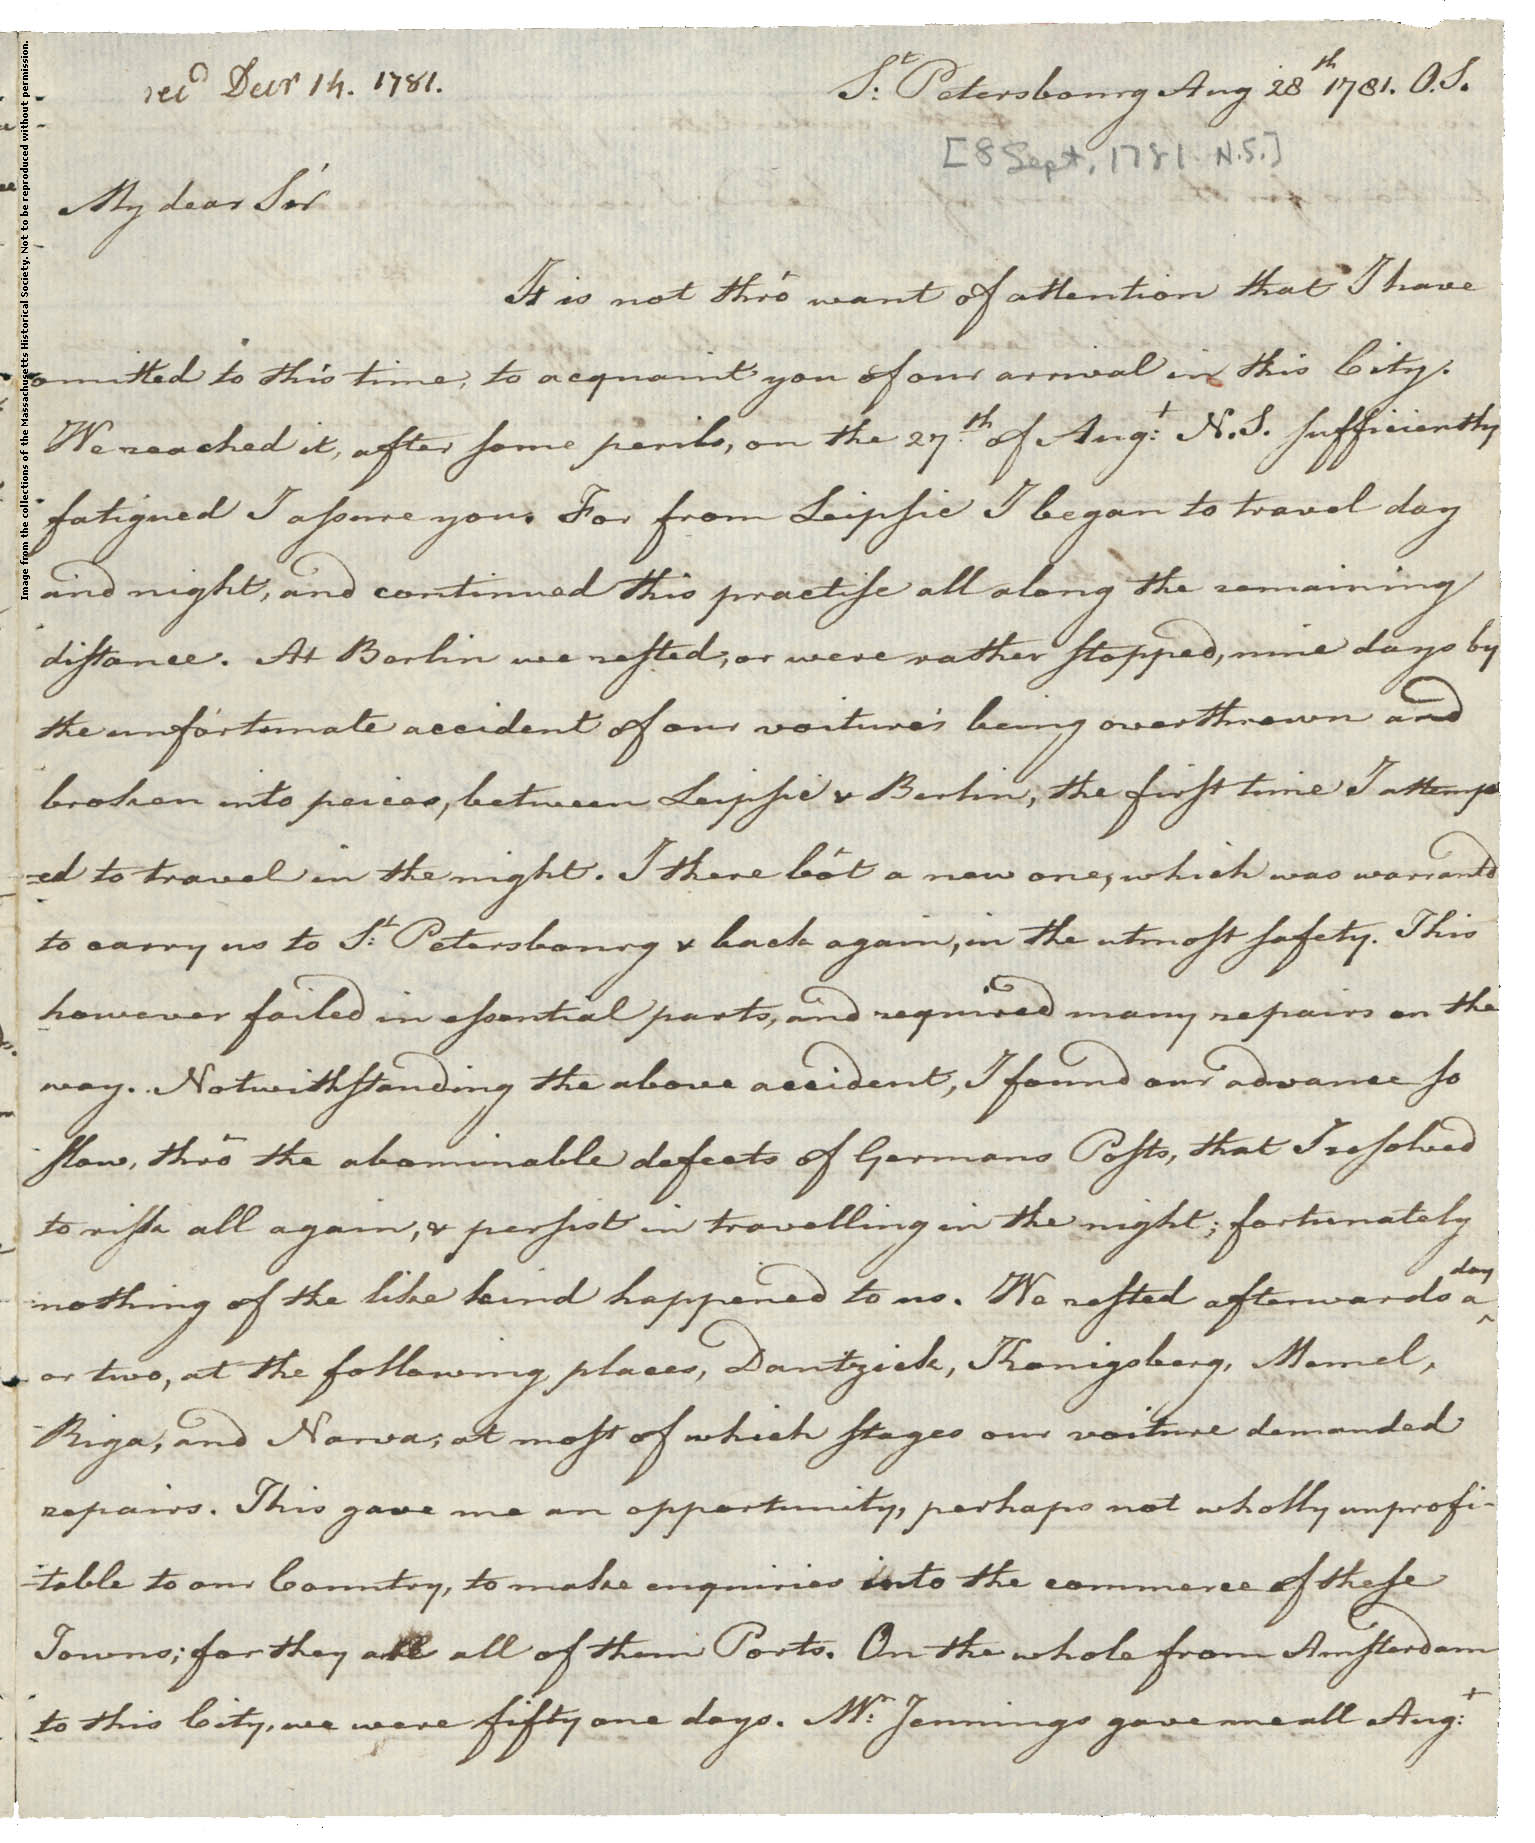 Image from the collections of the Massachusetts Historical Society. Not to be reproduced without permission.
recd Decr 14. 1781.
St: Petersbourg Aug 28th 1781. O.S.
[8 Sept, 1781 N.S.]
My dear Sir
It is not thrô want of attention that I have
omitted to this time, to acquaint you of our arrival in this City.
We reached it, after some perils, on the 27.th of Augt: N.S. sufficiently
fatigued I assure you. For from Leipsic I began to travel day
and night, and continued this practise all along the remaining
distance. At Berlin we rested, or were rather stopped, nine days by
the unfortunate accident of our voiture's being overthrown and
broken into peices, between Leipsic & Berlin, the first time I attempt
-ed to travel in the night. I there bôt a new one, which was warrantd
to carry us to St: Petersbourg & back again, in the utmost safety. This
however failed in essential parts, and required many repairs on the
way. Notwithstanding the above accident, I found our advance so
slow, thrô the abominable defects of Germans Posts, that I resolved
to risk all again, & persist in travelling in the night; fortunately
nothing of the like kind happened to us. We rested afterwards a day
or two, at the following places, Dantzick, Konigsberg, Memel,
Riga, and Narva; at most of which stages our voiture demanded
repairs. This gave me an opportunity, perhaps not wholly unprofi-
-table to our Country, to make enquiries into the commerce of these
Towns; for they are all of them Ports. On the whole from Amsterdam
to this City, we were fifty one days. Mr: Jennings gave me all Augt: